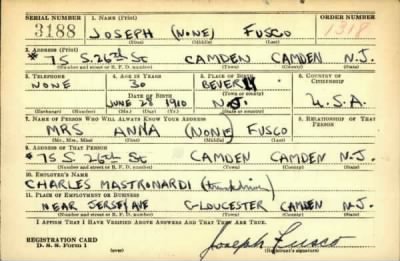 SERIAL NUMBER 1. NAME (Print) ORDER NUMBER
3188 JOSEPH (NONE) FUSCO 1318
(First) (Middle) (Last)
2. ADDRESS (Print)
# 75 S. 26th St CAMDEN CAMDEN N.J.
(Number and street or R. F. D. number) (Town) (County) (State)
3. TELEPHONE 4. AGE IN YEARS 5. PLACE OF BIRTH 6. COUNTRY OF CITIZENSHIP
NONE 30 BEVERLY
DATE OF BIRTH (Town or county)
JUNE 28 1910 N.J. U.S.A.
(Exchange) (Number) (Mo.) (Day) (Yr.) (State or country)
7. NAME OF PERSON WHO WILL ALWAYS KNOW YOUR ADDRESS 8. RELATIONSHIP OF THAT PERSON
MRS ANNA (NONE) FUSCO
(Mr., Mrs., Miss) (First) (Middle) (Last)
9. ADDRESS OF THAT PERSON
# 75 S 26th St CAMDEN CAMDEN N.J.
(Number and street or R. F. D. number) (Town) (County) (State)
10. EMPLOYER'S NAME
CHARLES MASTRONARDI
11. PLACE OF EMPLOYMENT OR BUSINESS
NEAR JERSEY AVE GLOUCESTER CAMDEN N.J.
(Number and street or R. F. D. number) (Town) (County) (State)
I AFFIRM THAT I HAVE VERIFIED ABOVE ANSWERS AND THAT THEY ARE TRUE.
REGISTRATION CARD
D. S. S. Form 1 Joseph Fusco
(Registrant's signature)